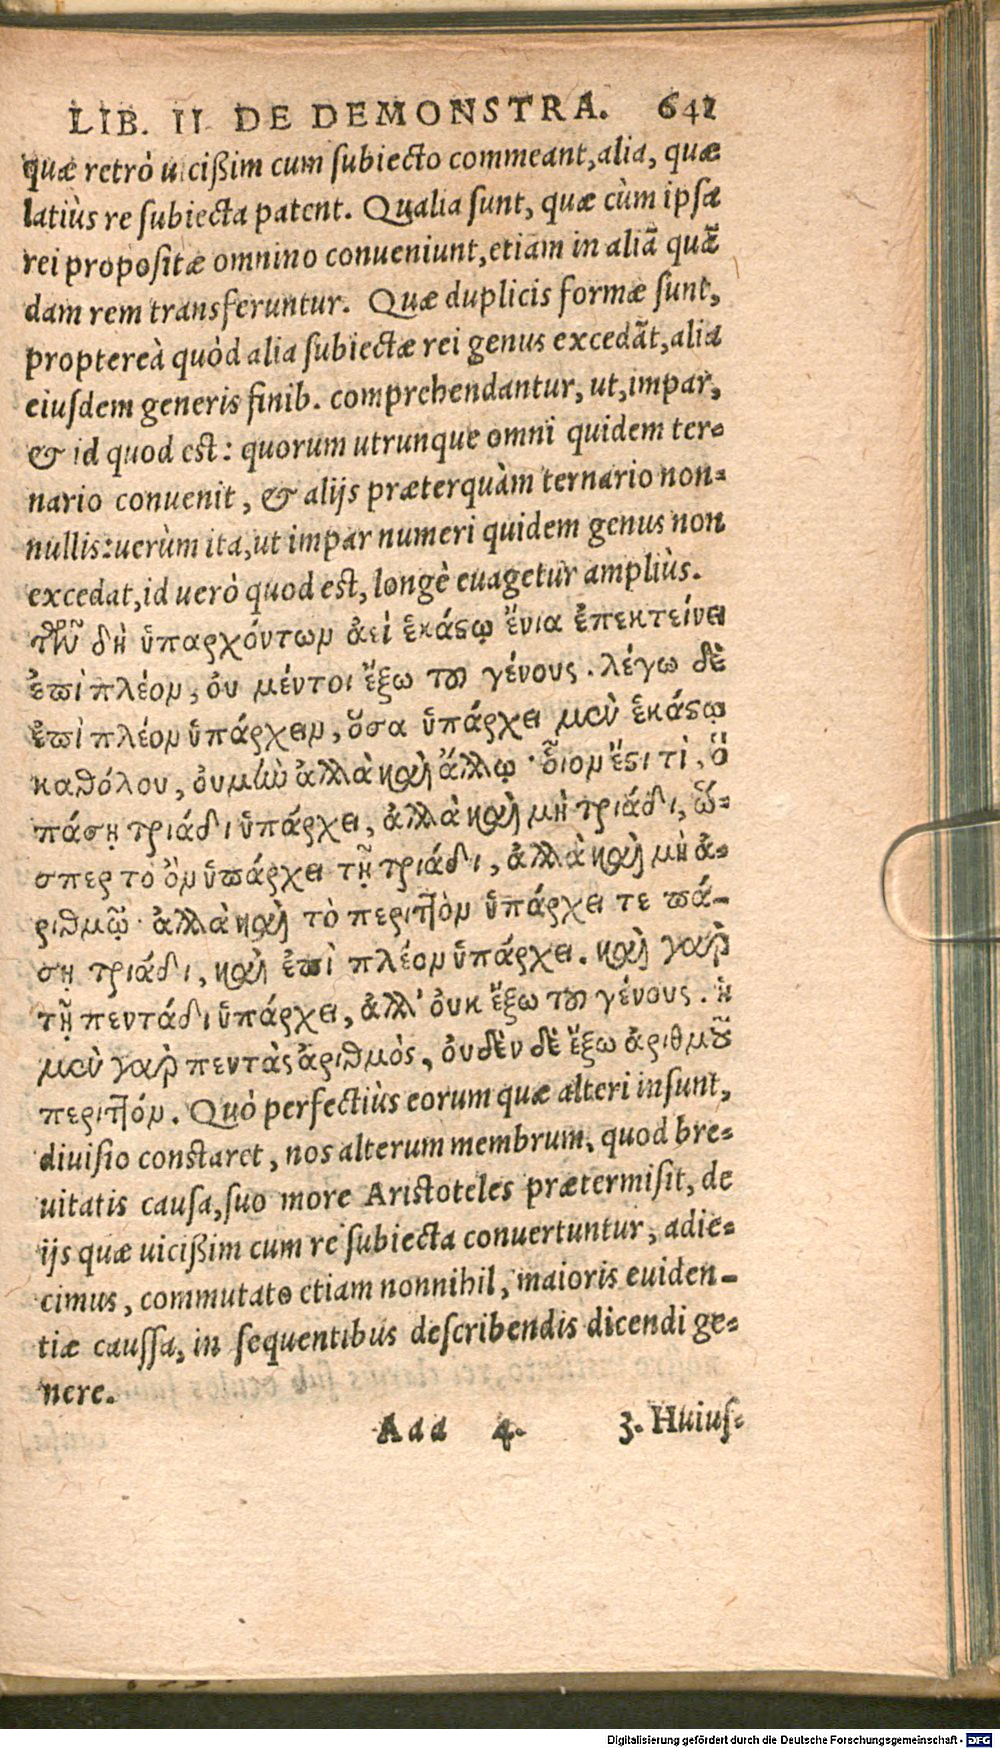 LIB. II DE DEMONSTRA. 641
quæ retrò uicißim cum subiecto commeant, alia, quæ
latiùs re subiecta patent. Qualia sunt, quæ cùm ipsæ
rei propositæ omnino conueniunt, etiam in aliã quã
dam rem transferuntur. Quæ duplicis formæ sunt,
proptereà quòd alia subiectæ rei genus excedãt, alia
eiusdem generis finib. comprehendantur, ut, impar,
& id quod est: quorum utrunque omni quidem ter-
nario conuenit, & alijs præterquàm ternario non-
nullis: uerùm ita, ut impar numeri quidem genus non
excedat, id uerò quod est, longè euagetur ampliùs.
τῶν δὴ ὑπαρχόντων ἀεὶ ἑκάστῳ ἔνια ἐπεκτείνει
ἐπὶ πλέον, ὀυ μέντοι ἔξω τοῦ γένους. λέγω δὲ
ἐπὶ πλέον ὑπάρχειν, ὅσα ὑπάρχει μὲν ἑκάστῳ
καθόλου, ὀυ μὴν ἀλλὰ καὶ ἄλλῳ· οἷον ἔστι τὶ, ὃ
πάσῃ τριάδι ὑπάρχει, ἀλλὰ καὶ μὴ τριάδι, ὥ-
σπερ τὸ ὂν ὑπάρχει τῇ τριάδι, ἀλλὰ καὶ μὴ ἀ-
ριθμῷ· ἀλλὰ καὶ τὸ περιττὸν ὑπάρχει τε πά-
σῃ τριάδι, καὶ ἐπὶ πλέον ὑπάρχει. καὶ γὰρ
τῇ πεντάδι ὑπάρχει, ἀλλ' ὀυκ ἔξω τοῦ γένους. ἡ
μὲν γὰρ πεντὰς ἀριθμὸς, ὀυδὲν δὲ ἔξω ἀριθμοῦ
περιττόν. Quò perfectiùs eorum quæ alteri insunt,
diuisio constaret, nos alterum membrum, quod bre-
uitatis causa, suo more Aristoteles prætermisit, de
ijs quæ uicißim cum re subiecta conuertuntur, adie-
cimus, commutato etiam nonnihil, maioris euiden-
tiæ caussa, in sequentibus describendis dicendi ge-
nere.
Aaa 4. 3. Huius-
Digitalisierung gefördert durch die Deutsche Forschungsgemeinschaft - DFG